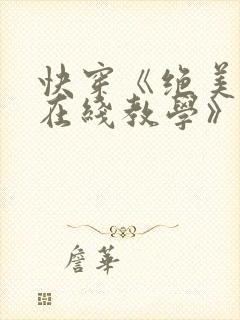 快穿《绝美
在綫教學》
詹華